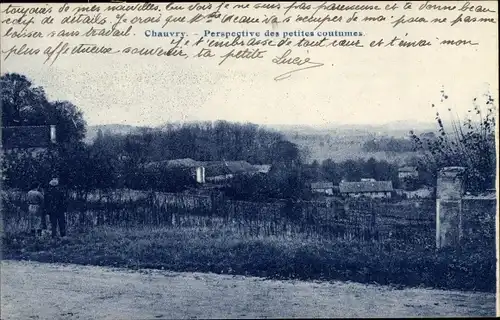 toujours de mes nouvelles. Tu vois je ne suis pas paresseuse et je te donne beau
coup de détails. Je crois que j'ai beau s'occuper de moi, pour ne pas me
laisser sans travail. Je t'embrasse de tout cœur et t'envoi mon
Chauvry. - Perspective des petites coutumes.
plus affectueux souvenir, ta petite Lucie